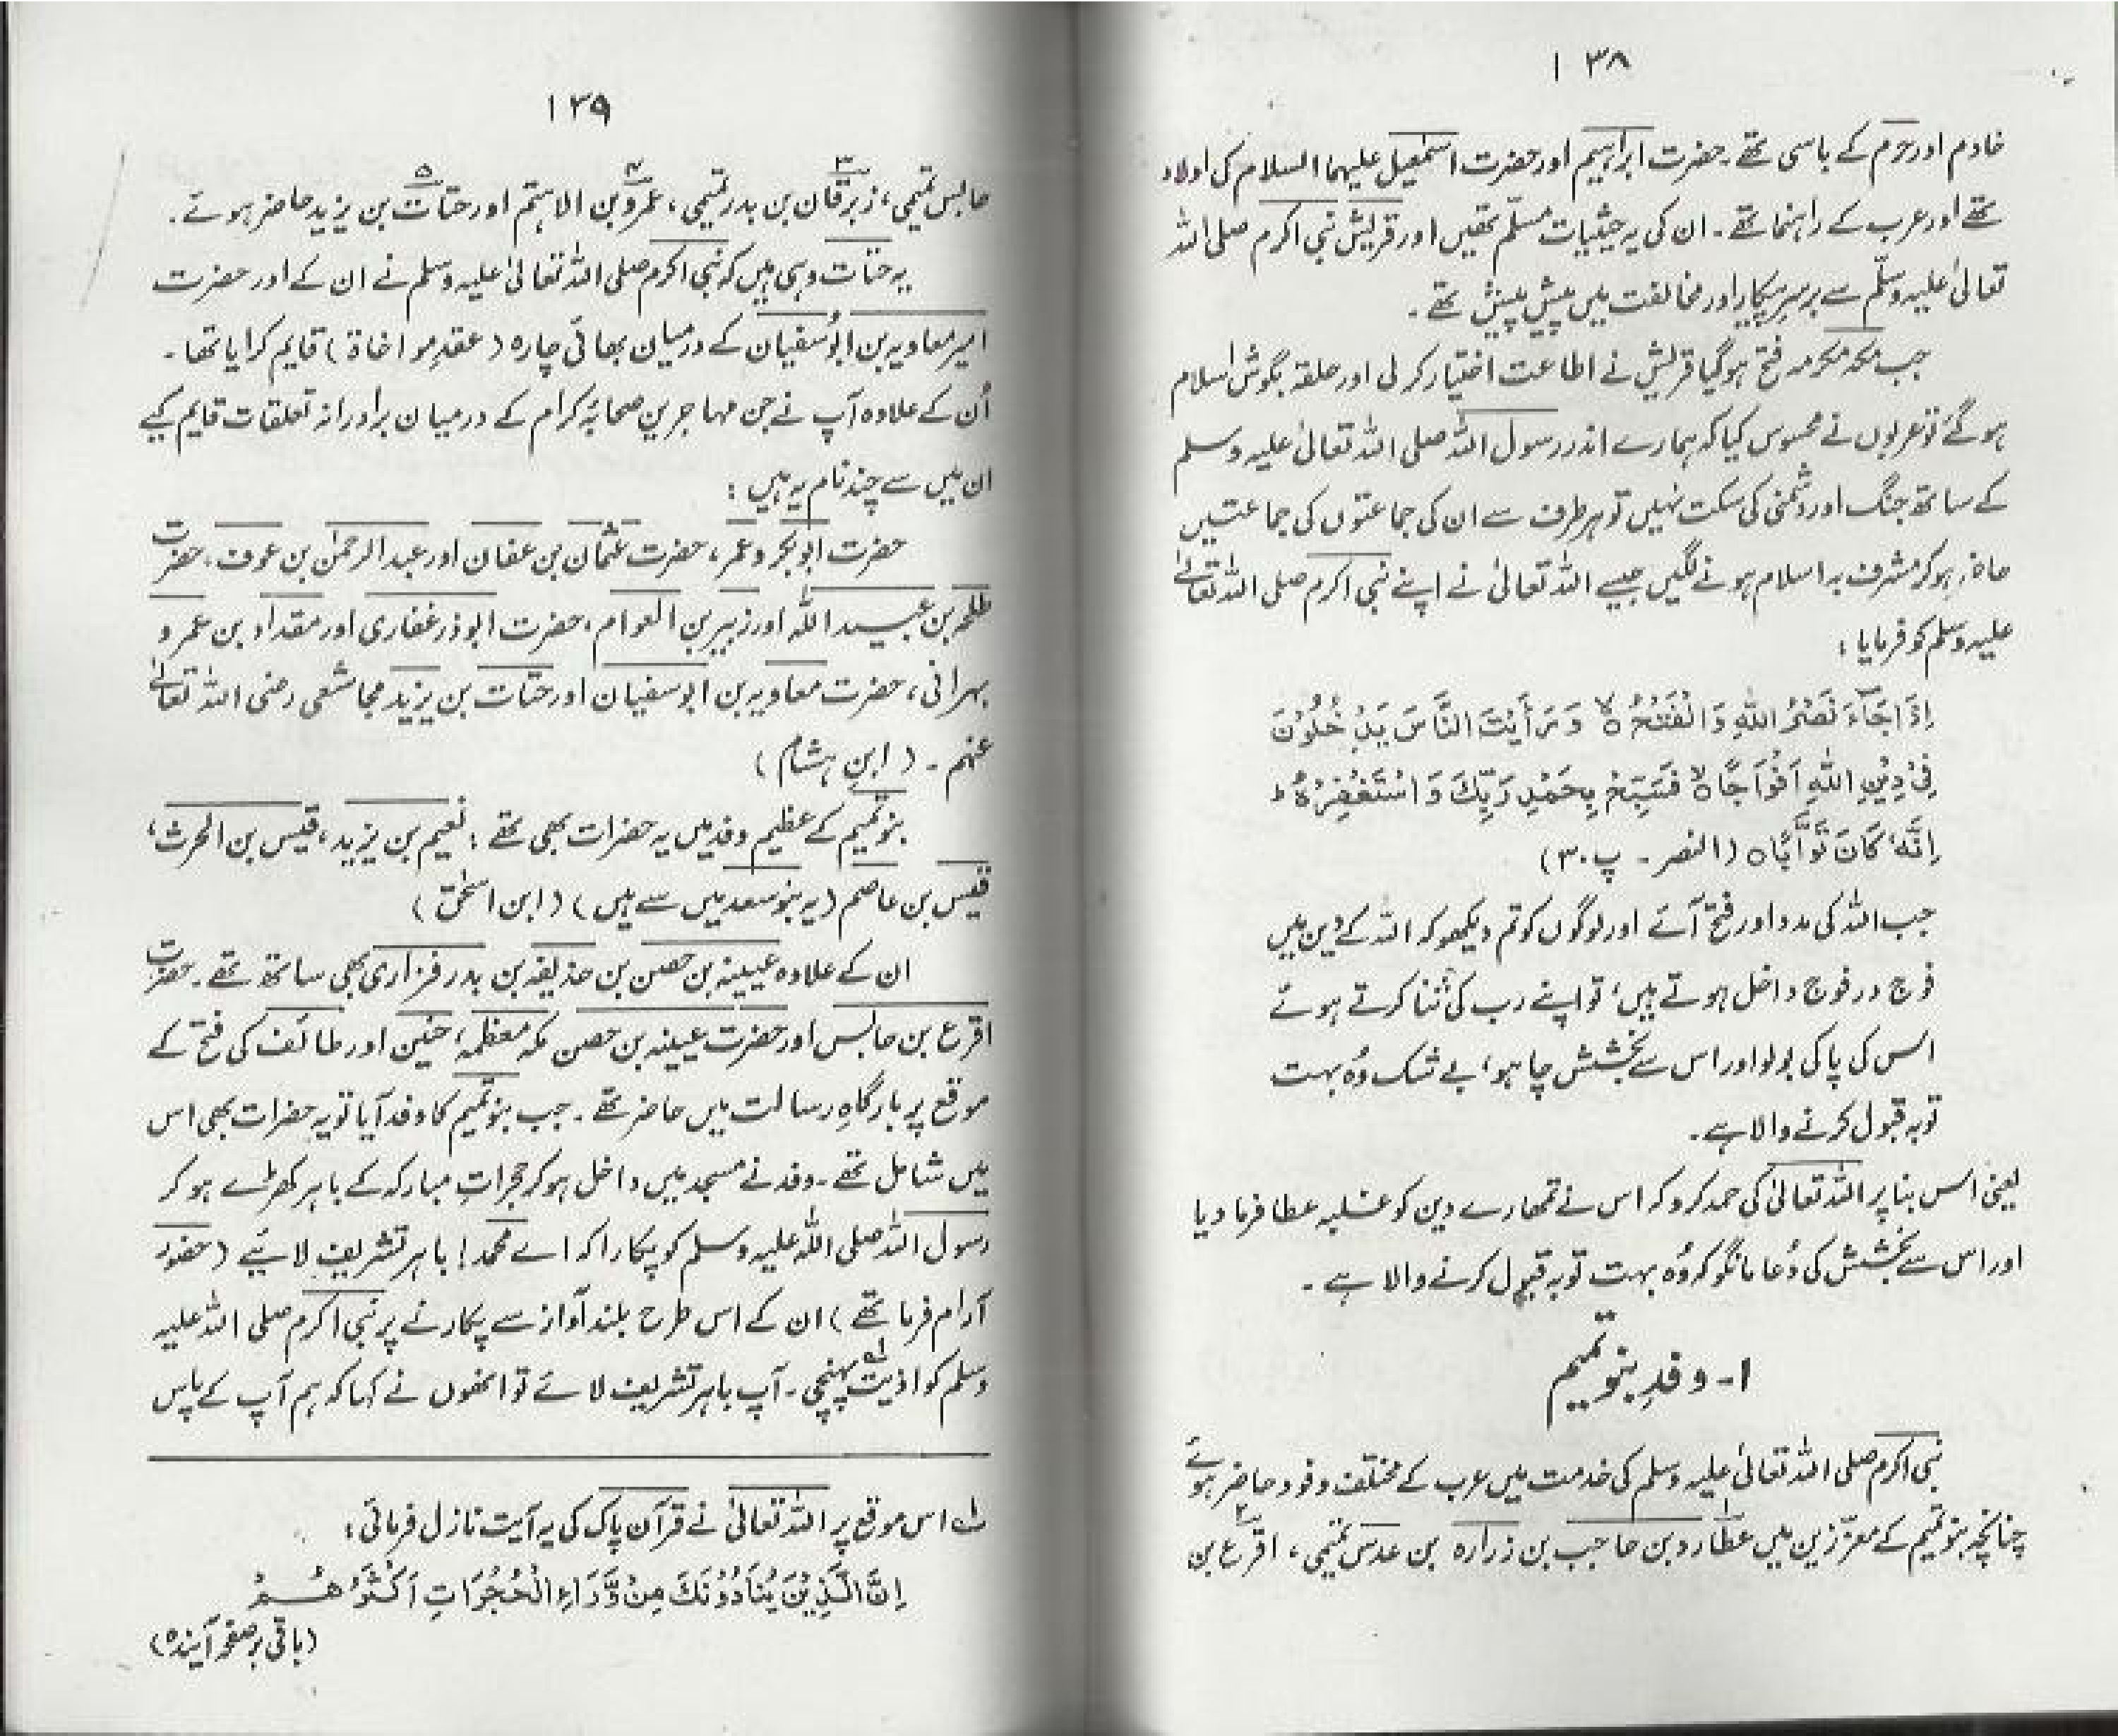 ۱۳۸
خادم اور حرم کے باسی تھے۔ حضرت ابراہیم اور حضرت اسمٰعیل علیہما السلام کی اولاد
تھے اور عرب کے راہنما تھے۔ ان کی یہ حیثیات مسلّم تھیں اور قریش نبی اکرم صلی اللہ
تعالیٰ علیہ وسلّم سے برسرِ پیکار اور مخالفت میں پیش پیش تھے۔
جب مکہ مکرمہ فتح ہوگیا قریش نے اطاعت اختیار کرلی اور حلقہ بگوش اسلام
ہوگئے تو عربوں نے محسوس کیا کہ ہمارے اندر رسول اللہ صلی اللہ تعالیٰ علیہ وسلم
کے ساتھ جنگ اور دشمنی کی سکت نہیں تو ہر طرف سے ان کی جماعتوں کی جماعتیں
حاضر ہوکر مشرف بہ اسلام ہونے لگیں جیسے اللہ تعالیٰ نے اپنے نبی اکرم صلی اللہ تعالیٰ
علیہ وسلم کو فرمایا :
اِذَا جَآءَ نَصْرُ اللہِ وَالْفَتْحُ ہ لا وَرَأَیْتَ النَّاسَ یَدْخُلُوْنَ
فِیْ دِیْنِ اللہِ اَفْوَاجًا ہ لا فَسَبِّحْ بِحَمْدِ رَبِّکَ وَاسْتَغْفِرْہُ ط
اِنَّہٗ کَانَ تَوَّابًا ہ (النصر ۔ پ ۳۰)
جب اللہ کی مدد اور فتح آئے اور لوگوں کو تم دیکھو کہ اللہ کے دین میں
فوج در فوج داخل ہوتے ہیں، تو اپنے رب کی ثنا کرتے ہوئے
اس کی پاکی بولو اور اس سے بخشش چاہو، بے شک وُہ بہت
توبہ قبول کرنے والا ہے۔
یعنی اس بنا پر اللہ تعالیٰ کی حمد کرو کہ اس نے تمھارے دین کو غلبہ عطا فرما دیا
اور اس سے بخشش کی دُعا مانگو کہ وُہ بہت توبہ قبول کرنے والا ہے۔
۱۔ وفدِ بنو تمیم
نبی اکرم صلی اللہ تعالیٰ علیہ وسلم کی خدمت میں عرب کے مختلف وفود حاضر ہوئے
چنانچہ بنو تمیم کے معززین میں عطارد بن حاجب بن زرارہ بن عدس تمیمی، اقرع بن
۱۳۹
حابس تمیمی، زبرقان۳ بن بدر تمیمی، عمرو۴ بن الاہتم اور حتات۵ بن یزید حاضر ہوئے۔
یہ حتات وہی ہیں کہ نبی اکرم صلی اللہ تعالیٰ علیہ وسلم نے ان کے اور حضرت
امیر معاویہ بن ابوسفیان کے درمیان بھائی چارہ (عقدِ مواخاۃ) قایم کرایا تھا۔
اُن کے علاوہ آپ نے جن مہاجرین صحابۂ کرام کے درمیان برادرانہ تعلقات قایم کیے
ان میں سے چند نام یہ ہیں :
حضرت ابوبکر و عمر، حضرت عثمان بن عفان اور عبدالرحمٰن بن عوف، حضرت
طلحہ بن عبیداللہ اور زبیر بن العوام، حضرت ابوذر غفاری اور مقداد بن عمرو
بہرانی، حضرت معاویہ بن ابوسفیان اور حتات بن یزید مجاشعی رضی اللہ تعالیٰ
عنہم۔ (ابنِ ہشام)
بنو تمیم کے عظیم وفد میں یہ حضرات بھی تھے : نعیم بن یزید، قیس بن الحرث،
قیس بن عاصم (یہ بنو سعد میں سے ہیں) (ابن اسحٰق)
ان کے علاوہ عیینہ بن حصن بن حذیفہ بن بدر فزاری بھی ساتھ تھے۔ حضرت
اقرع بن حابس اور حضرت عیینہ بن حصن مکہ معظمہ، حنین اور طائف کی فتح کے
موقع پر بارگاہِ رسالت میں حاضر تھے۔ جب بنو تمیم کا وفد آیا تو یہ حضرات بھی اس
میں شامل تھے۔ وفد نے مسجد میں داخل ہو کر حجراتِ مبارکہ کے باہر کھڑے ہو کر
رسول اللہ صلی اللہ علیہ وسلم کو پکارا کہ اے محمد! باہر تشریف لائیے (حضور
آرام فرما تھے) ان کے اس طرح بلند آواز سے پکارنے پر نبی اکرم صلی اللہ علیہ
وسلم کو اذیت پہنچی۔ آپ باہر تشریف لائے تو انھوں نے کہا کہ ہم آپ کے پاس
ف اس موقع پر اللہ تعالیٰ نے قرآن پاک کی یہ آیت نازل فرمائی :
اِنَّ الَّذِیْنَ یُنَادُوْنَکَ مِنْ وَّرَاءِ الْحُجُرَاتِ اَکْثَرُھُمْ
(باقی برصفحہ آیندہ)